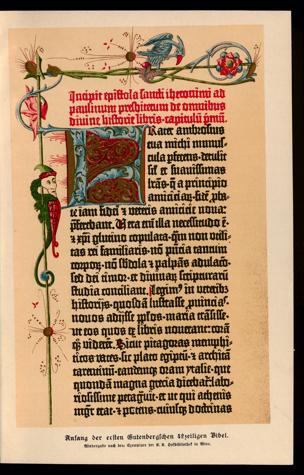 Incipit epistola sancti iheronimi ad
paulinum presbiterum de omnibus
divine historie libris. capitulū p̄mū.
Frater ambrosius
tua michi munus-
cula perferens. detulit
sil et suavissimas
lr̄as. q̄ a principio
amiciciar̄. fidē
te iam fidei et veteris amicicie nova
Vera em̄ illa necessitudo
et xp̄i glutino copulata. quam non utili-
tas rei familiaris. nō pn̄cia tantum
corporū. nō sbdola et palpās adulacō.
sed dei timor. et divinarū scripturarū
studia conciliant. Legim⁹ in veteribus
historijs. quosdā lustrasse puīncias.
novos adijsse pplos. maria trāsisse.
ut eos quos ex libris noverant. corā
q̄ viderēt. Sicut pitagoras memphi-
ticos vates. sic plato egiptū. et archita
tarentinū. eandemq̄ oram ytalie. que
quondā magna grecia dicebat.
riosissime peragravit. ut qui athenis
mgr̄ erat. et potens. cuiusq̄ doctrinas
Anfang der ersten Gutenbergschen 42zeiligen Bibel.
Wiedergabe nach dem Exemplar der K. K. Hofbibliothek in Wien.